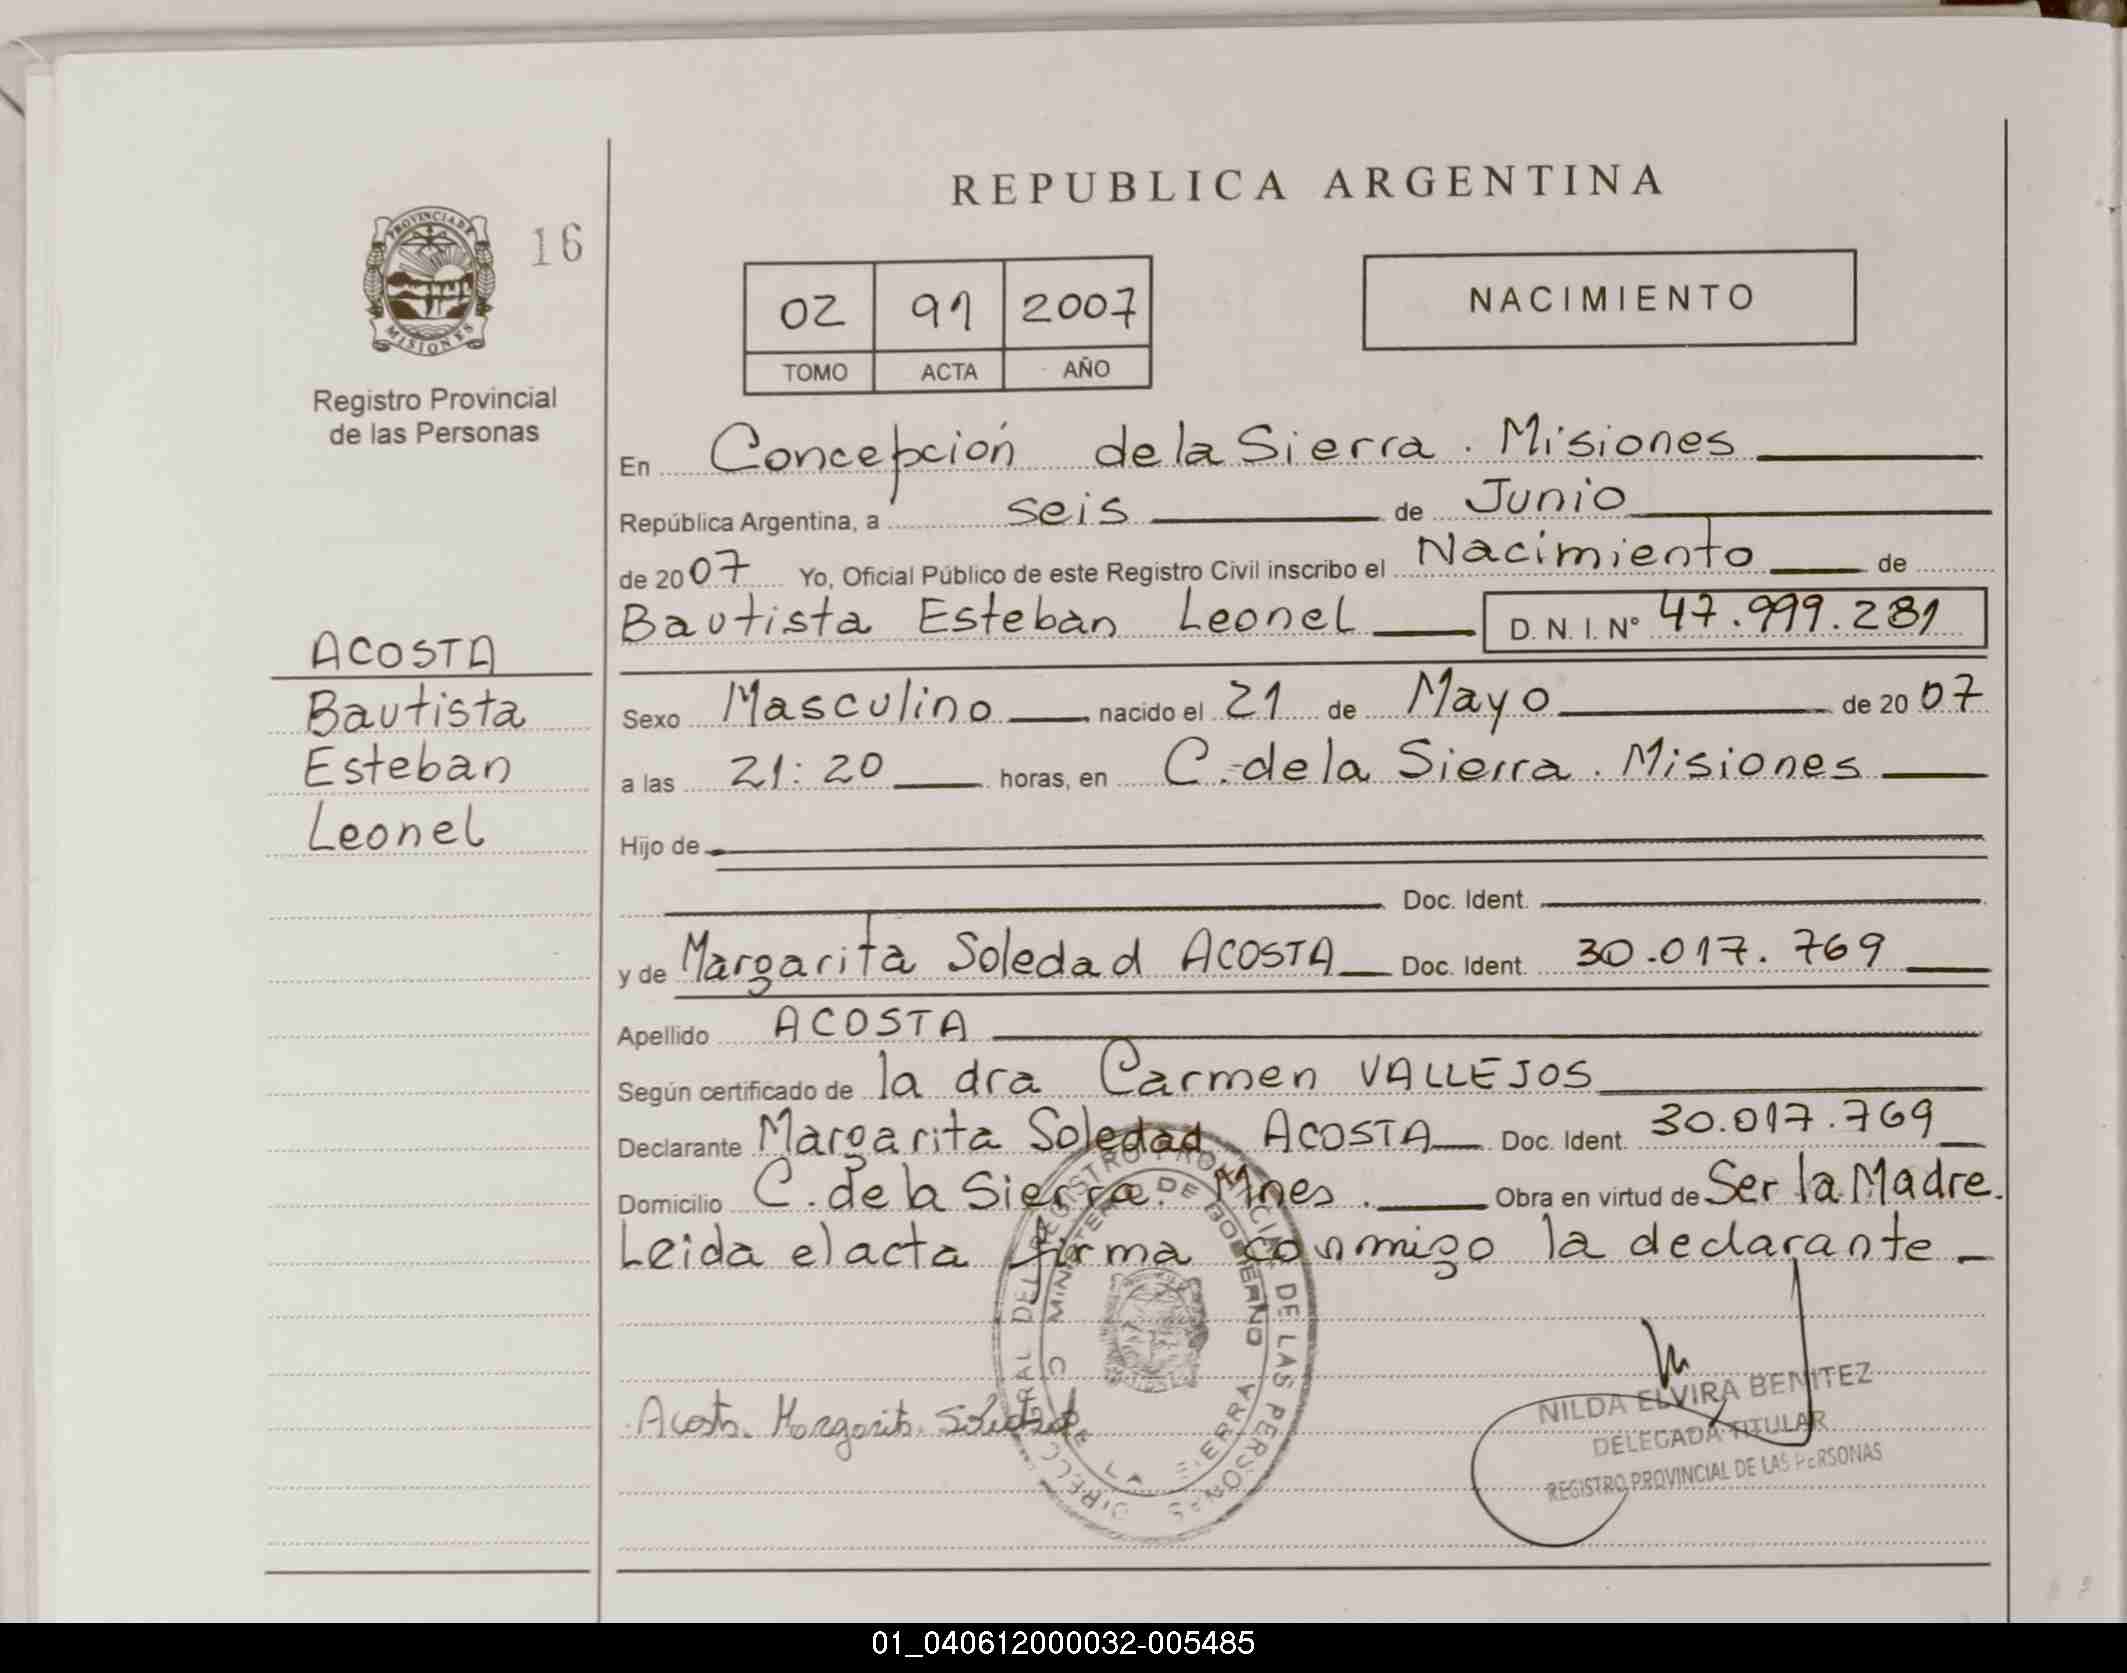 REPUBLICA ARGENTINA
PROVINCIA DE
MISIONES
16
Registro Provincial
de las Personas
02 91 2007
TOMO ACTA AÑO
NACIMIENTO
En Concepción de la Sierra. Misiones
República Argentina, a seis de Junio
de 2007 Yo, Oficial Público de este Registro Civil inscribo el Nacimiento de
Bautista Esteban Leonel D. N. I. N° 47.999.281
ACOSTA
Bautista
Esteban
Leonel
Sexo Masculino nacido el 21 de Mayo de 2007
a las 21:20 horas, en C. de la Sierra. Misiones
Hijo de
Doc. Ident.
y de Margarita Soledad ACOSTA Doc. Ident. 30.017.769
Apellido ACOSTA
Según certificado de la dra Carmen VALLEJOS
Declarante Margarita Soledad ACOSTA Doc. Ident. 30.017.769
Domicilio C. de la Sierra. Mnes. Obra en virtud de Ser la Madre.
Leida el acta firma conmigo la declarante
Acosta Margarita Soledad
DIRECC GRAL DEL REGISTRO PROVINCIAL DE LAS PERSONAS
MINISTERIO DE GOBIERNO
C DE LA SIERRA
NILDA ELVIRA BENITEZ
DELEGADA TITULAR
REGISTRO PROVINCIAL DE LAS PERSONAS
01_040612000032-005485